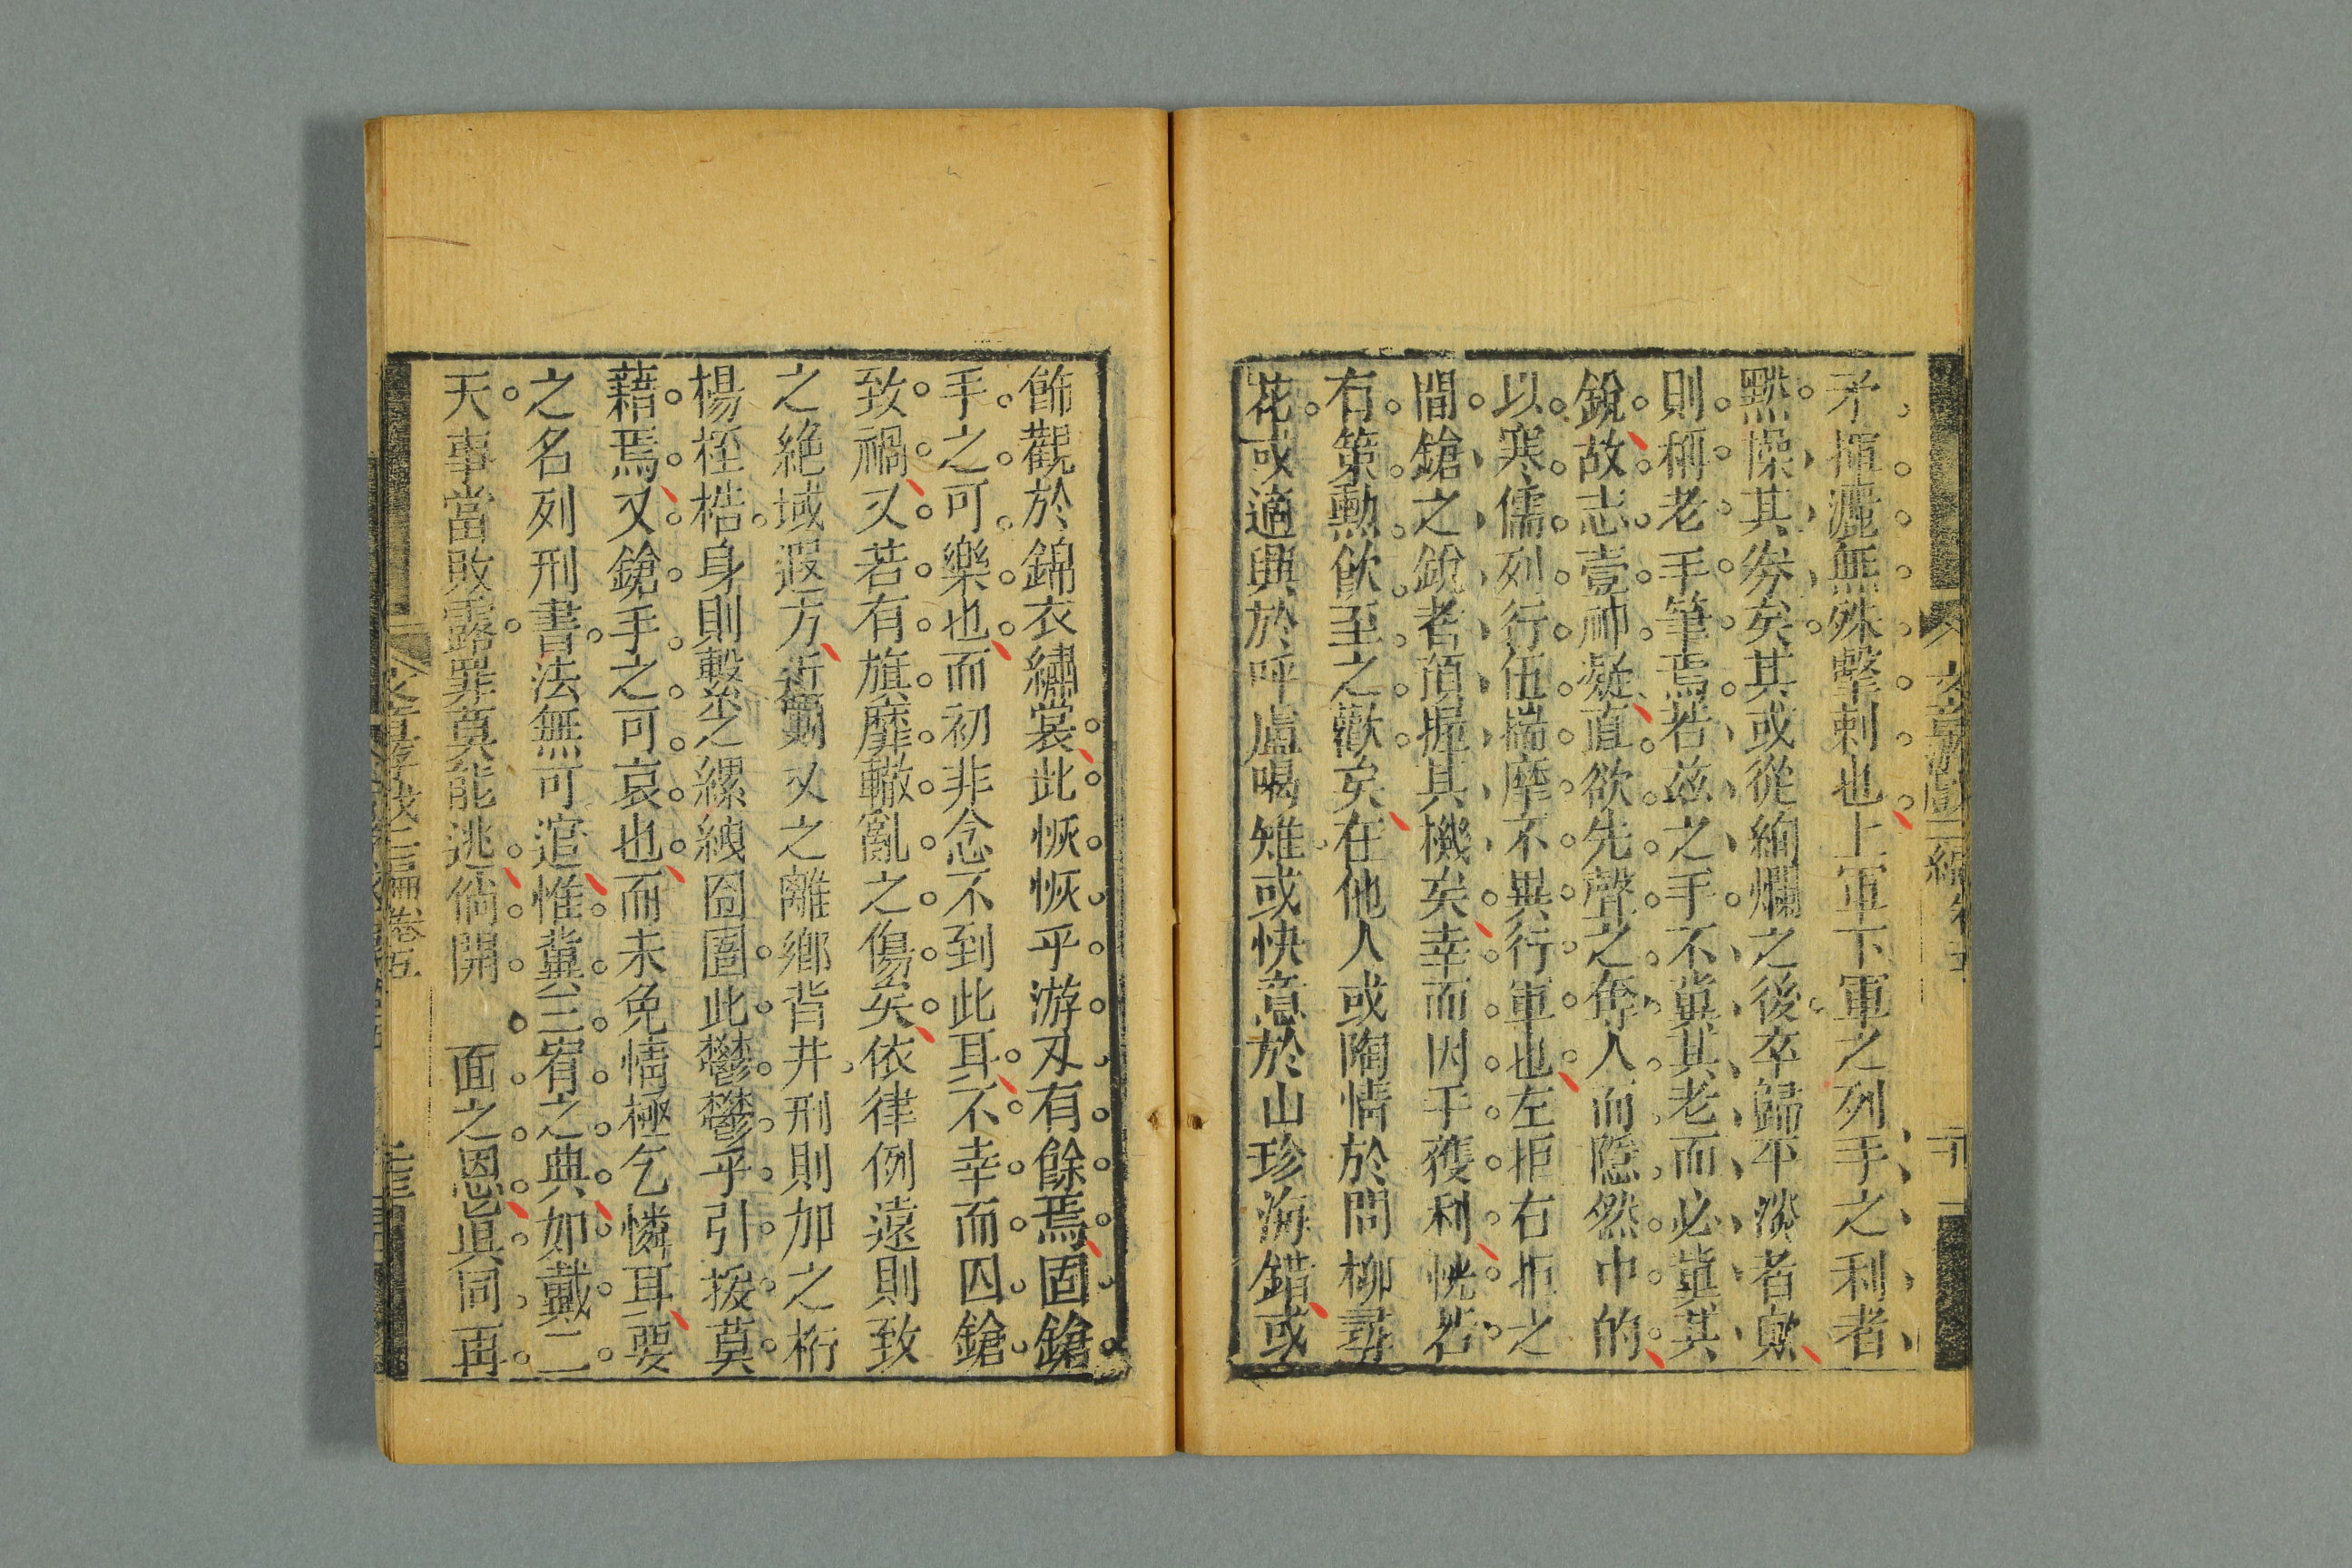 矛揮瀍無殊擊剌也上軍下軍之列手之利者
黙慔其劵矣其或從絢爛之後卒歸平淡者歟
則稱老手筆焉若兹之手不兾其老而必兾其
銳故志壹神凝直欲先聲之奪人而隱然中的
以寒儒列行伍揣摩不異行軍也左拒右拒之
間鎗之銳者預握其機矣幸而因手獲利恍若
有策勲飲至之歡矣在他人或陶情於問柳尋
花或適興於呼盧喝雉或快意於山珍海錯或
飾觀於錦衣繡裳此恢恢乎游刄有餘焉固鎗
手之可樂也而初非念不到此耳不幸而因鎗
致禍又若有旗靡轍亂之傷矣依律例遠則致
之絶域遐方近勦又之離鄉背井刑則加之桁
楊桎梏身則繫之縲絏囹圄此鬱鬱乎引援莫
藉焉又鎗手之可哀也而未免情極乞憐耳要
之名列刑書法無可逭惟兾三宥之典如戴二
天事當敗露罪莫能逃倘開 面之恩眞同再
文章游戲二編卷五